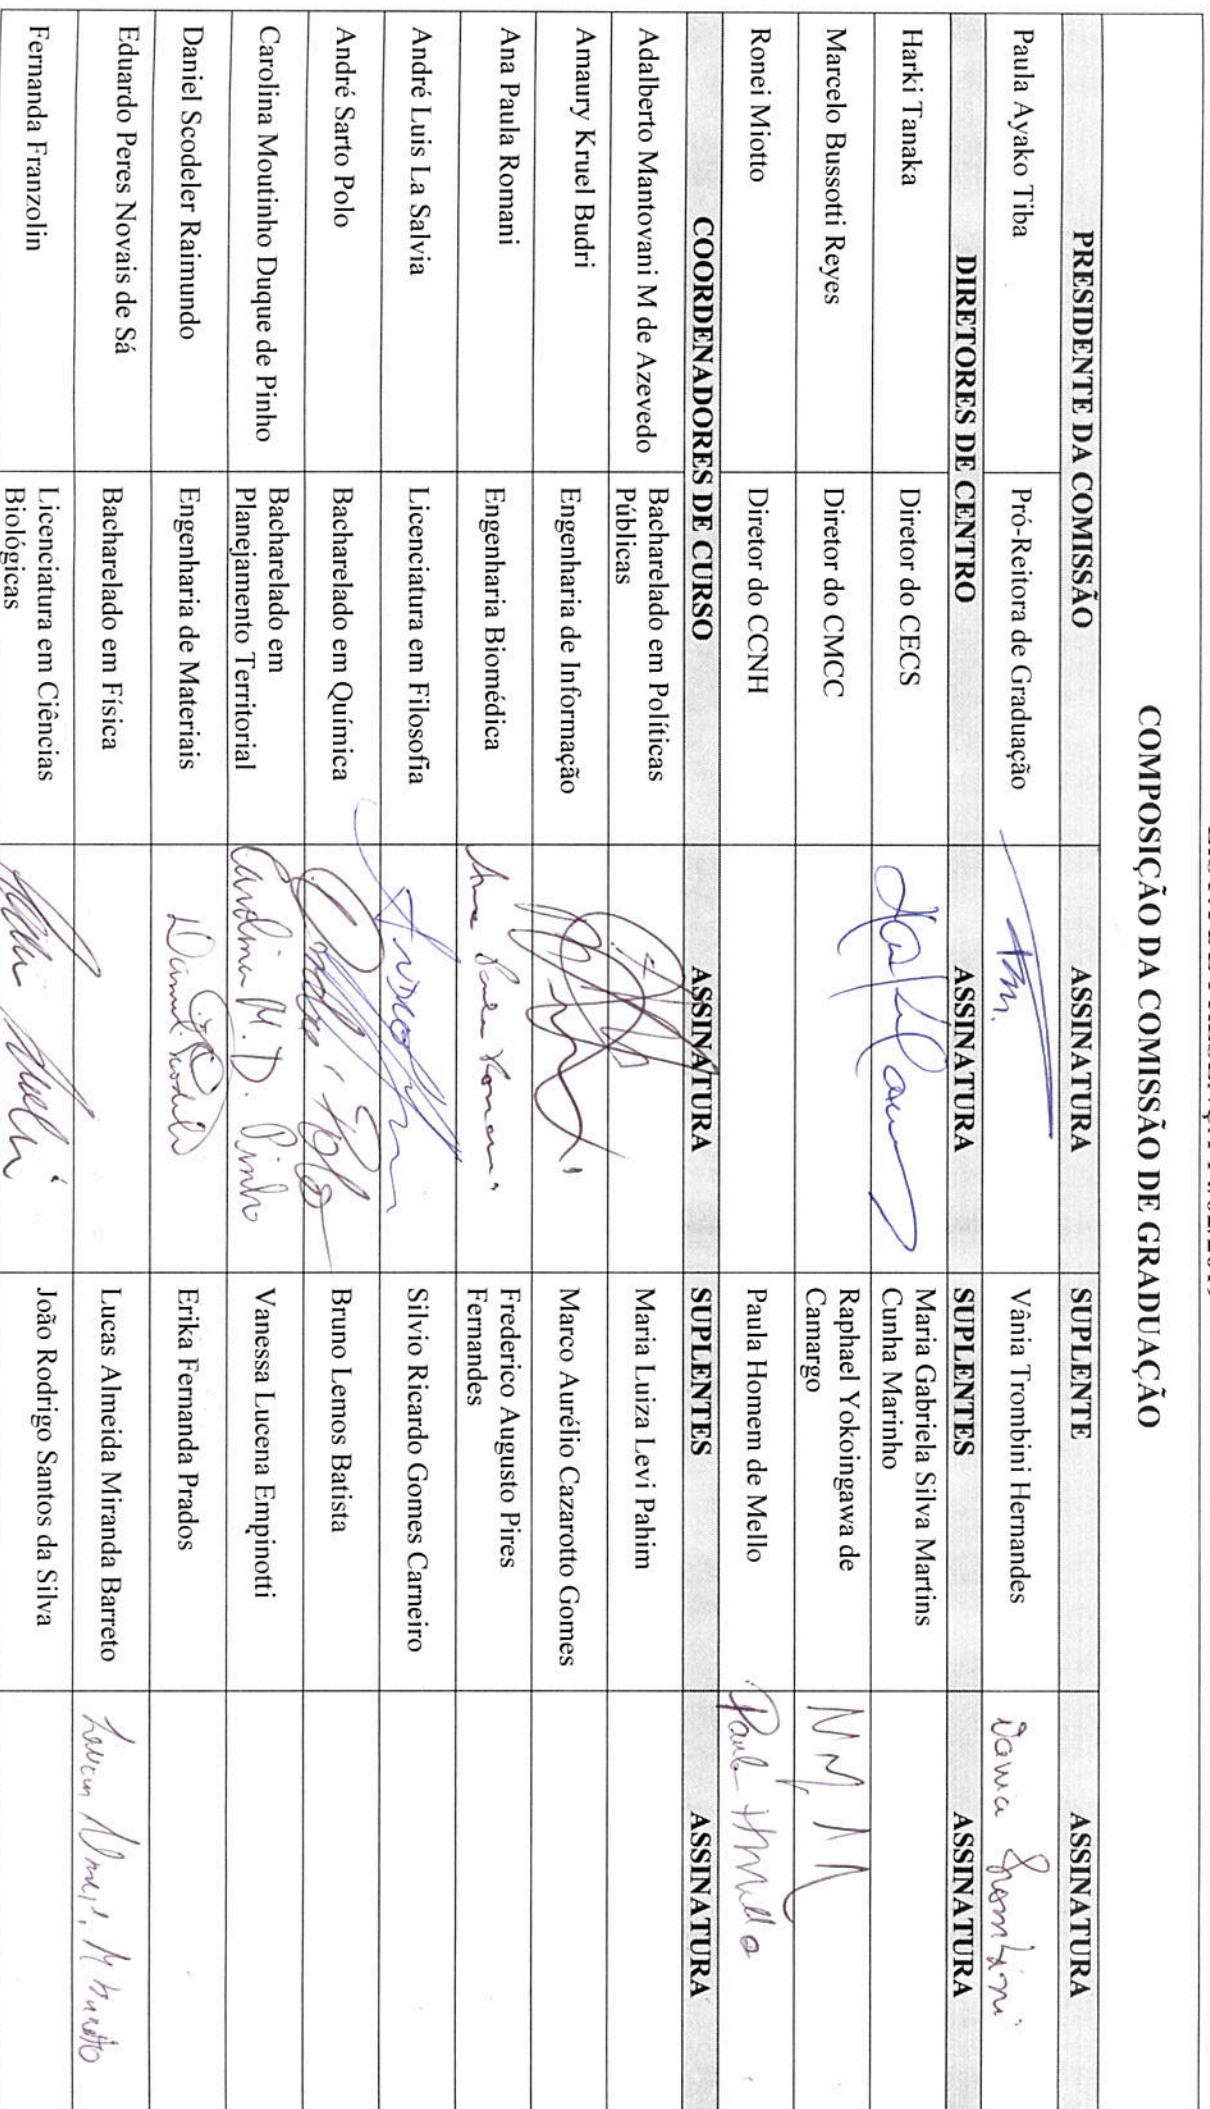 COMPOSIÇÃO DA COMISSÃO DE GRADUAÇÃO
PRESIDENTE DA COMISSÃO ASSINATURA SUPLENTE ASSINATURA
Paula Ayako Tiba Pró-Reitora de Graduação Vânia Trombini Hernandes Vania Trombini
DIRETORES DE CENTRO ASSINATURA SUPLENTES ASSINATURA
Harki Tanaka Diretor do CECS Maria Gabriela Silva Martins
Cunha Marinho
Marcelo Bussotti Reyes Diretor do CMCC Raphael Yokoingawa de
Camargo
Ronei Miotto Diretor do CCNH Paula Homem de Mello Paula HMello
COORDENADORES DE CURSO ASSINATURA SUPLENTES ASSINATURA
Adalberto Mantovani M de Azevedo Bacharelado em Políticas
Públicas Maria Luiza Levi Pahim
Amaury Kruel Budri Engenharia de Informação Marco Aurélio Cazarotto Gomes
Ana Paula Romani Engenharia Biomédica Ana Paula Romani Frederico Augusto Pires
Fernandes
André Luis La Salvia Licenciatura em Filosofia Silvio Ricardo Gomes Carneiro
André Sarto Polo Bacharelado em Química Bruno Lemos Batista
Carolina Moutinho Duque de Pinho Bacharelado em
Planejamento Territorial Carolina M. D. Pinho Vanessa Lucena Empinotti
Daniel Scodeler Raimundo Engenharia de Materiais Erika Fernanda Prados
Eduardo Peres Novais de Sá Bacharelado em Física Lucas Almeida Miranda Barreto Lucas Almeida M. Barreto
Fernanda Franzolin Licenciatura em Ciências
Biológicas João Rodrigo Santos da Silva